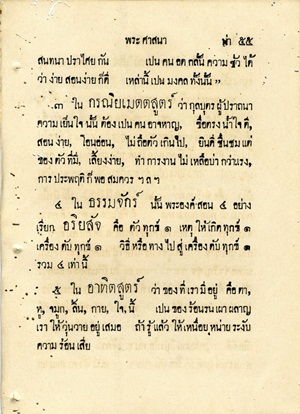 พระ ศาสนา น่า ๕๕
สนทนา ปราไศย กัน เปน คน อด กลั้น ความ ชั่ว ได้
ว่า ง่าย สอน ง่าย ก็ดี เหล่านี้ เปน มงคล ทั้งนั้น ”
๓ ใน กรณิยเมตตสูตร์ ว่า กุลบุตร ผู้ ปราถนา
ความ เย็นใจ นั้น ต้อง เปน คน อาจหาญ, ซื่อตรง น้ำใจ ดี,
สอน ง่าย, อ่อนอ่อน, ไม่ ถือตัว เกินไป, ยินดี ชื่นชม แต่
ของ ตัว ที่มี, เลี้ยงง่าย, ทำ การงาน ไม่ เหลือบ่า กว่าแรง,
การ ประพฤติ ก็ พอ สมควร ฯลฯ
๔ ใน ธรรมจักร์ นั้น พระองค์ สอน ๔ อย่าง
เรียก อริยสัจ คือ ตัว ทุกข์ ๑ เหตุ ให้ เกิด ทุกข์ ๑
เครื่อง ดับ ทุกข์ ๑ วิธี หรือ ทาง ไป สู่ เครื่อง ดับ ทุกข์ ๑
รวม ๔ เท่านี้
๕ ใน อาทิตสูตร์ ว่า ของ ที่ เรา มี อยู่ คือ ตา,
หู, จมูก, ลิ้น, กาย, ใจ, นี้ เปน ของ ร้อนรน เผา ผลาญ
เรา ให้ วุ่นวาย อยู่ เสมอ ถ้า รู้ แล้ว ให้ เหนื่อย หน่าย ระงับ
ความ ร้อน เสีย